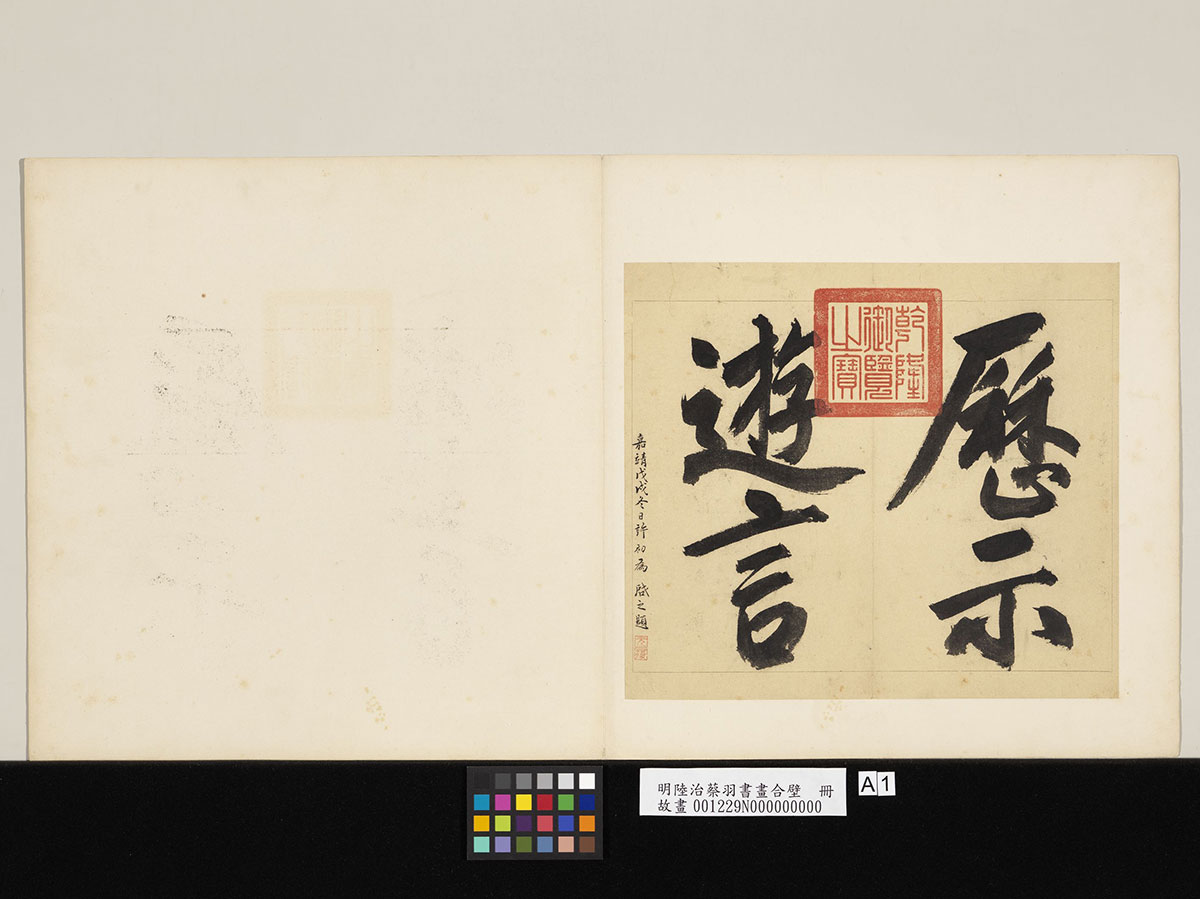 歷示
遊言
乾隆
御覽
之寶
嘉靖戊戌冬日許初為 啟之題
元復
明陸治蔡羽書畫合壁 冊
故畫 001229N000000000
A1